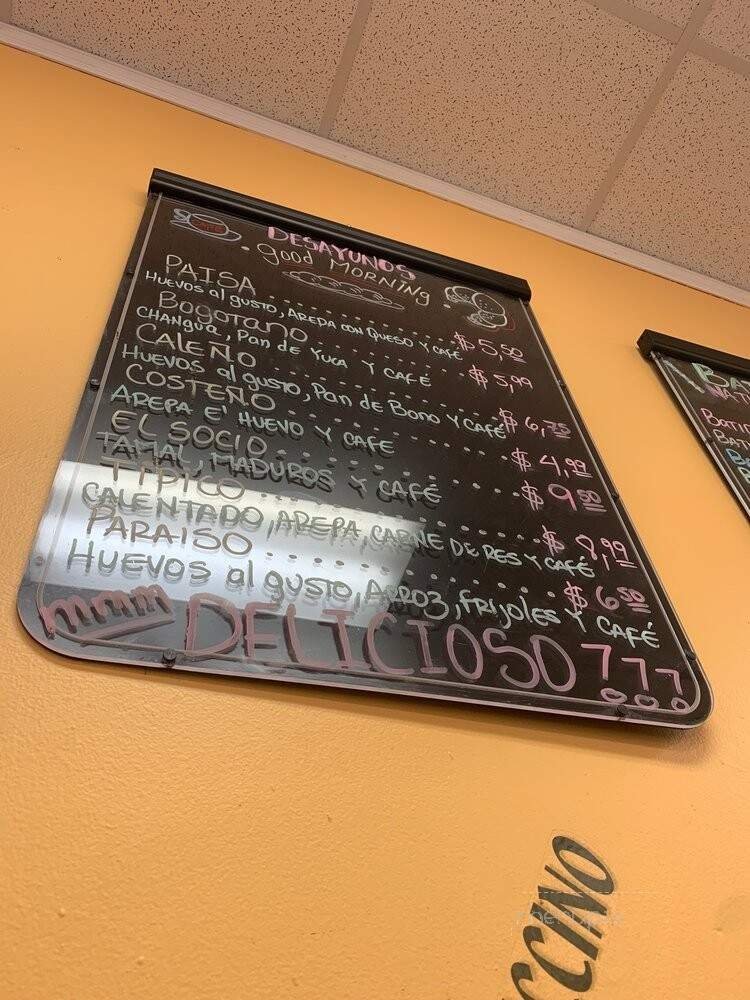 CAFE
DESAYUNOS
. Good MORNING .
PAISA ............ $5,50
HUEVOS al gusto, AREPA CON QUESO Y CAFÉ
Bogotano ............ $5,99
CHANGUA, Pan de YUCA Y CAFÉ
CALEÑO ............ $6,75
HUEVOS al gusto, Pan de Bono Y CAFÉ
COSTEÑO ............ $4,99
AREPA E' HUEVO Y CAFÉ
EL SOCIO ............ $9,50
TAMAL, MADUROS Y CAFÉ
TIPICO ............ $8,99
CALENTADO, AREPA, CARNE DE RES Y CAFÉ
PARAISO ............ $6,50
HUEVOS al gusto, ARROZ, FRIJOLES Y CAFÉ
mmmm DELICIOSO !!!
CCINO